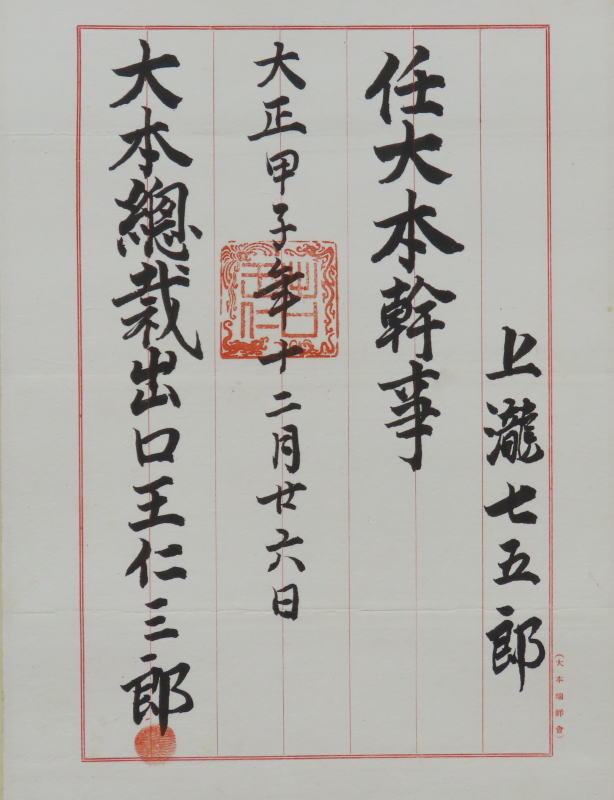 上瀧七五郎
任大本幹事
大正甲子年十二月廿六日
大本總裁出口王仁三郎
(大本瑞祥會)